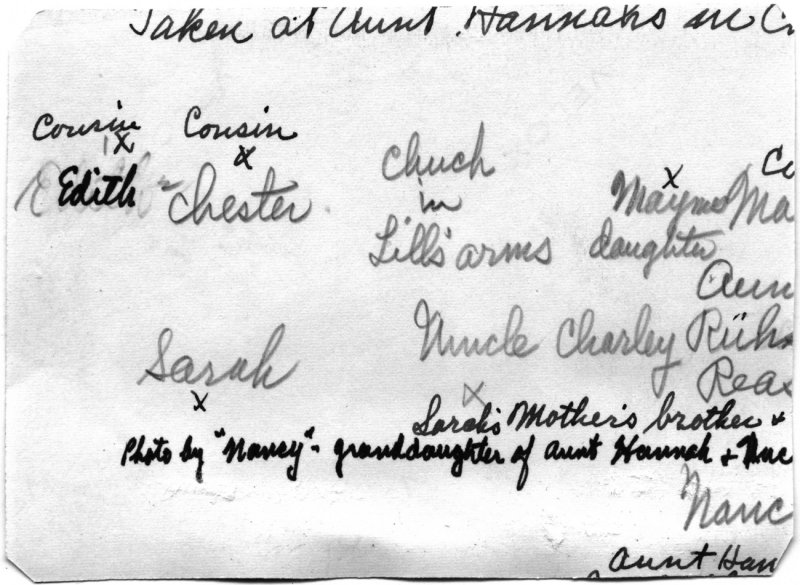 Taken at Aunt Hannahs in
Cousin Cousin
x x
Edith - Chester
Chuch
in
Lills' arms
x
Mayme Ma
daughter
Aun
Uncle Charley Rüh
Reas
Sarah
x
x
Sarah's Mother's brother +
Photo by "Nancy" - granddaughter of Aunt Hannah + Unc
Nanc
Aunt Han